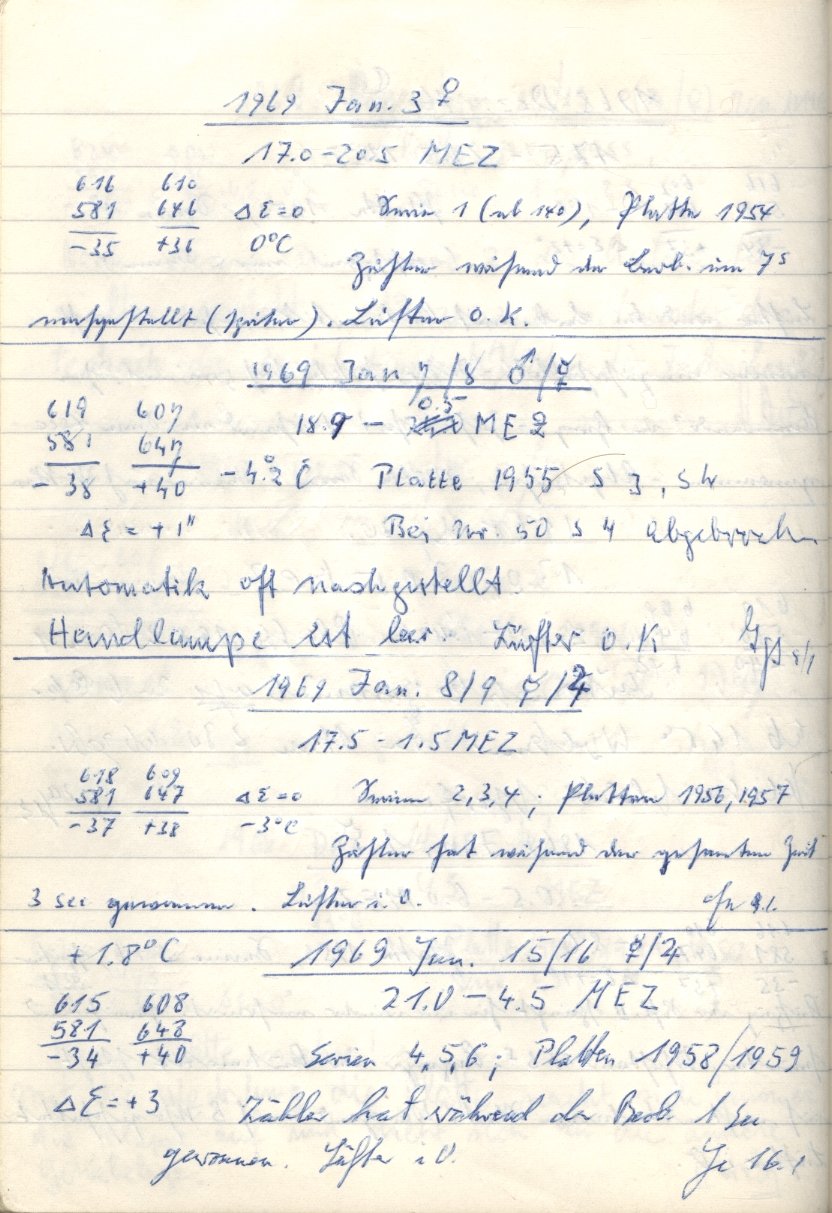 1969 Jan. 3 ♀
17.0 – 20.5 MEZ
616 610
581 646 ΔE = 0 Serie 1 (ab 140), Platte 1954
-35 +36 0°C
Zähler während der Beob. um 7s
nachgestellt (später). Lüfter O.K.
1969 Jan 7/8 ♂/☿
619 607 18.9 – 0.5 MEZ
581 647
-38 +40 -4.2°C Platte 1955 S 3, S 4
ΔE = +1" Bei Nr. 50 S 4 abgebrochen
Automatik oft nachgestellt.
Handlampe ist leer. Lüfter O.K
1969 Jan. 8/9 ☿/♃
17.5 – 1.5 MEZ
618 609
581 647 ΔE = 0 Serien 2, 3, 4; Platten 1956, 1957
-37 +38 -3°C
Zähler hat während der gesamten Zeit
3 sec gewonnen. Lüfter i.O. 9.1.
+1.8°C 1969 Jan. 15/16 ☿/♃
615 608 21.0 – 4.5 MEZ
581 648
-34 +40 Serien 4, 5, 6; Platten 1958/1959
ΔE = +3 Zähler hat während der Beob. 1 sec
gewonnen. Lüfter i.O. 16.1